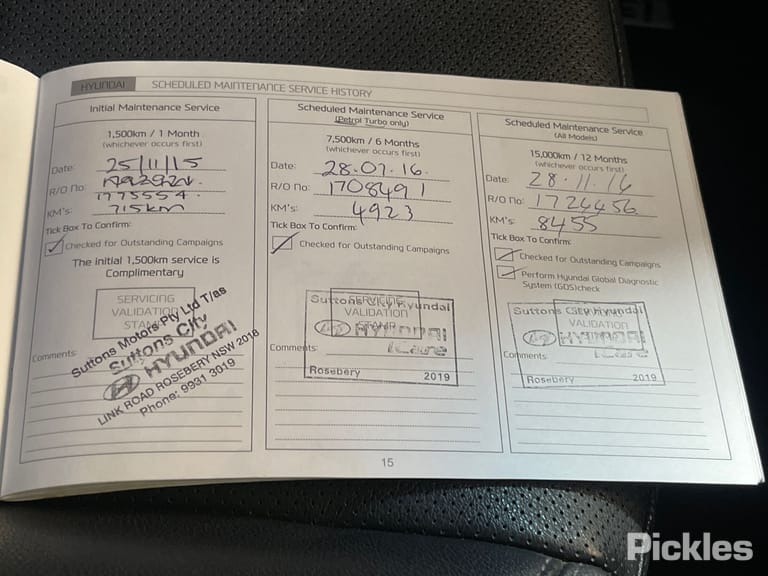 HYUNDAI SCHEDULED MAINTENANCE SERVICE HISTORY
Initial Maintenance Service
1,500km / 1 Month
(whichever occurs first)
Date: 25/11/15
R/O No:
1775554
KM's: 715km
Tick Box To Confirm:
Checked for Outstanding Campaigns
The initial 1,500km service is
Complimentary
SERVICING
VALIDATION
STAMP
Suttons Motors Pty Ltd T/as
Suttons City
HYUNDAI
LINK ROAD ROSEBERY NSW 2018
Phone: 9931 3019
Comments:
Scheduled Maintenance Service
(Petrol Turbo only)
7,500km / 6 Months
(whichever occurs first)
Date: 28.07.16.
R/O No: 1708491
KM's: 4923
Tick Box To Confirm:
Checked for Outstanding Campaigns
SERVICING
VALIDATION
STAMP
Suttons City Hyundai
HYUNDAI
iCare
Comments:
Rosebery 2019
Scheduled Maintenance Service
(All Models)
15,000km / 12 Months
(whichever occurs first)
Date: 28.11.16
R/O No: 1724456
KM's: 8455
Tick Box To Confirm:
Checked for Outstanding Campaigns
Perform Hyundai Global Diagnostic
System (GDS)check
Suttons City Hyundai
VALIDATION
HYUNDAI
iCare
Comments
Rosebery 2019
15
Pickles